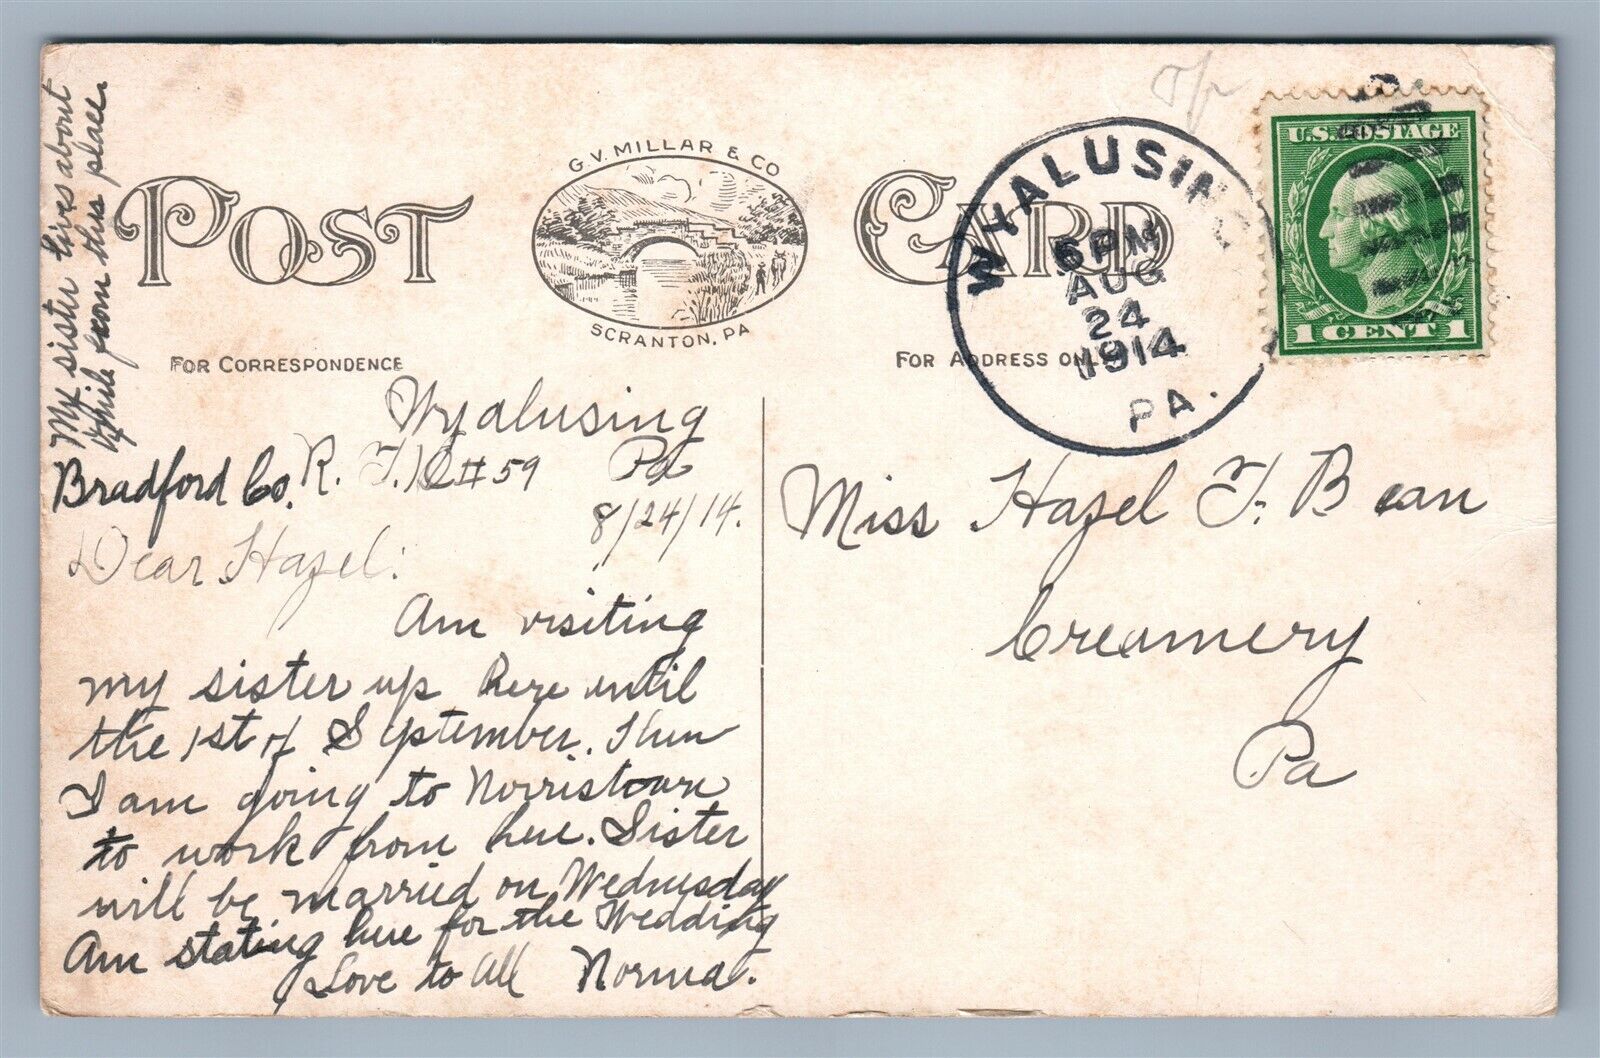 My sister lives about
1/2 mile from this place.
POST CARD
G.V. MILLAR & CO
SCRANTON, PA
FOR CORRESPONDENCE
FOR ADDRESS ONLY
WYALUSING
6 PM
AUG
24
1914
PA.
U.S. POSTAGE
1 CENT 1
Wyalusing
Bradford Co. R. F. D #59 Pa
8/24/14.
Dear Hazel:
Am visiting
my sister up here until
the 1st of September. Then
I am going to Norristown
to work from here. Sister
will be married on Wednesday
Am stating here for the Wedding
Love to all Norma.
Miss Hazel F. Bean
Creamery
Pa